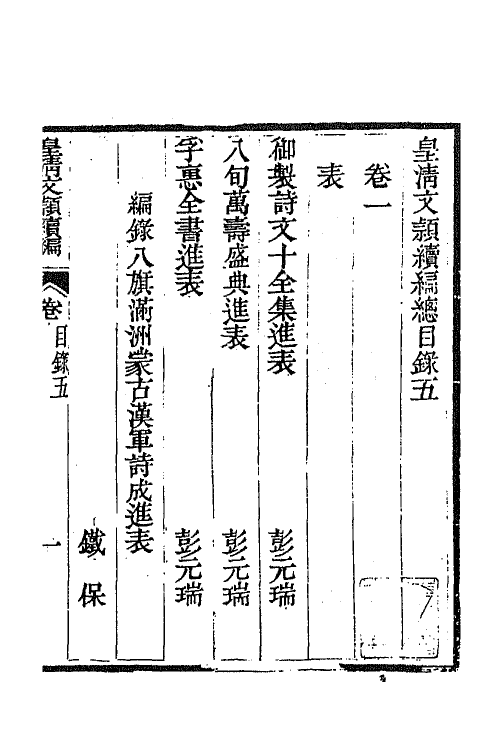 皇淸文頴續編總目錄五
卷一
表
御製詩文十全集進表 彭元瑞
八旬萬壽盛典進表 彭元瑞
孚惠全書進表 彭元瑞
編錄八旗滿洲蒙古漢軍詩成進表
鐵保
皇淸文頴續編 卷 目錄五 一